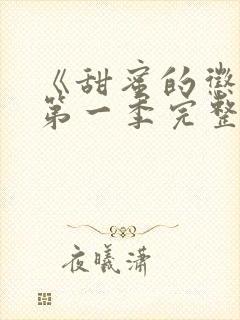 《甜蜜的惩
第一季完整
夜曦潇